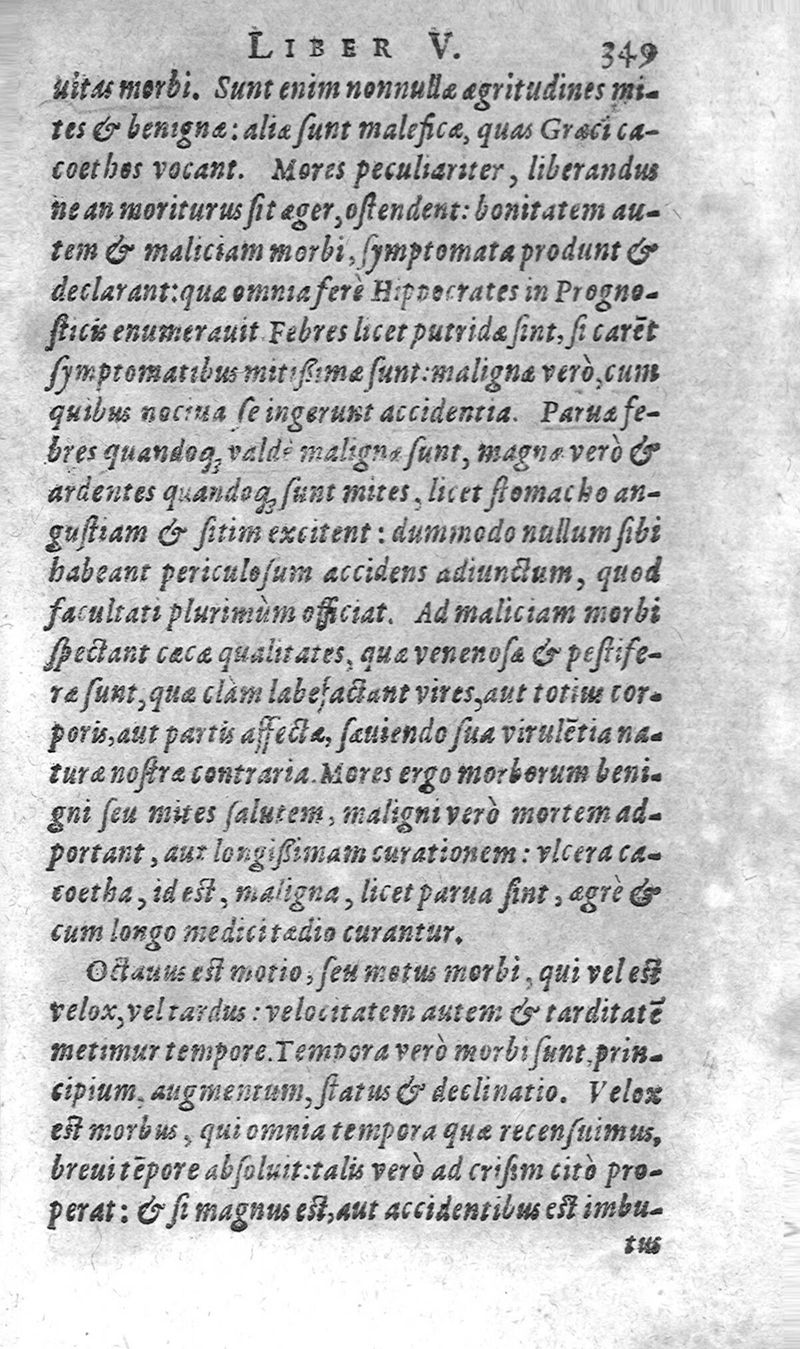 LIBER V. 349
uitas morbi. Sunt enim nonnullæ ægritudines mi-
tes & benignæ: aliæ ſunt maleficæ, quas Græci ca-
coethes vocant. Mores peculiariter, liberandus
ne an moriturus ſit æger, oſtendent: bonitatem au-
tem & maliciam morbi, ſymptomata produnt &
declarant: quæ omnia ferè Hippocrates in Progno-
ſticis enumerauit. Febres licet putridæ ſint, ſi carēt
ſymptomatibus mitiſſimæ ſunt: malignæ verò, cum
quibus nociua ſe ingerunt accidentia. Paruæ fe-
bres quandoq; valdè malignæ ſunt, magnæ verò &
ardentes quandoq; ſunt mites, licet ſtomacho an-
guſtiam & ſitim excitent: dummodo nullum ſibi
habeant periculoſum accidens adiunctum, quod
facultati plurimùm officiat. Ad maliciam morbi
ſpectant cæcæ qualitates, quæ venenoſæ & peſtife-
ræ ſunt, quæ clàm labefactant vires, aut totius cor-
poris, aut partis affectæ, ſæuiendo ſua virulētia na-
turæ noſtræ contraria. Mores ergo morborum beni-
gni ſeu mites ſalutem, maligni verò mortem ad-
portant, aut longiſſimam curationem: vlcera ca-
coetha, id eſt, maligna, licet parua ſint, ægrè &
cum longo medici tædio curantur.
Octauus eſt motio, ſeu motus morbi, qui vel eſt
velox, vel tardus: velocitatem autem & tarditatē
metimur tempore. Tempora verò morbi ſunt, prin-
cipium, augmentum, ſtatus & declinatio. Velox
eſt morbus, qui omnia tempora quæ recenſuimus,
breui tēpore abſoluit: talis verò ad criſim citò pro-
perat: & ſi magnus eſt, aut accidentibus eſt imbu-
tus